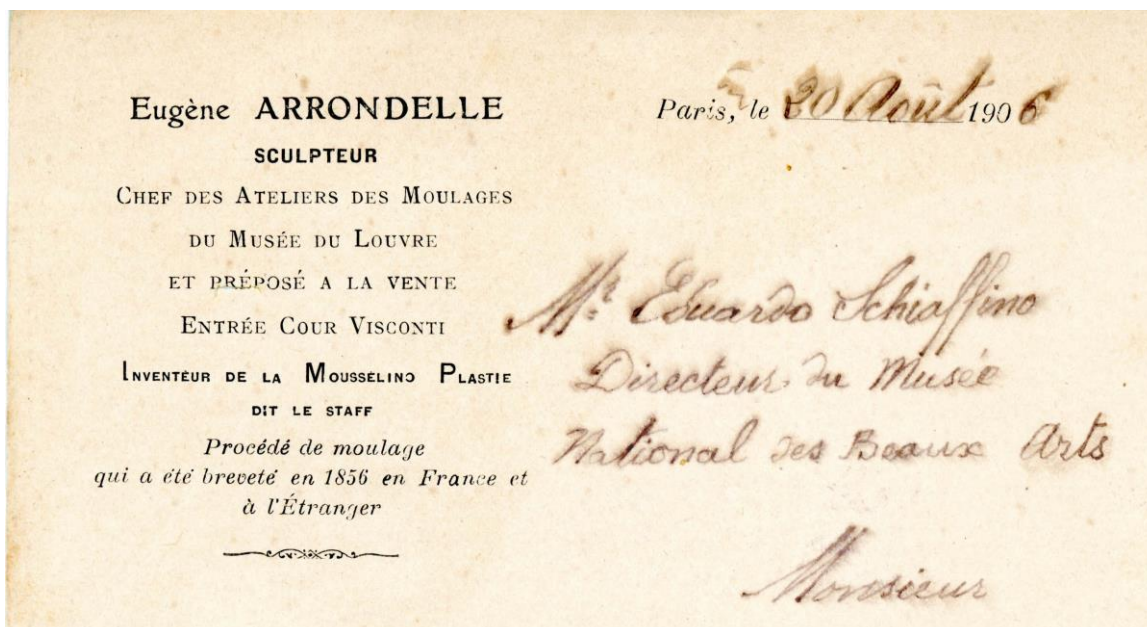 Eugène ARRONDELLE
SCULPTEUR
CHEF DES ATELIERS DES MOULAGES
DU MUSÉE DU LOUVRE
ET PRÉPOSÉ A LA VENTE
ENTRÉE COUR VISCONTI
INVENTEUR DE LA MOUSSELINO PLASTIE
DIT LE STAFF
Procédé de moulage
qui a été breveté en 1856 en France et
à l'Étranger
Paris, le 20 Août 1906
Mr Eduardo Schiaffino
Directeur du Musée
National des Beaux Arts
Monsieur